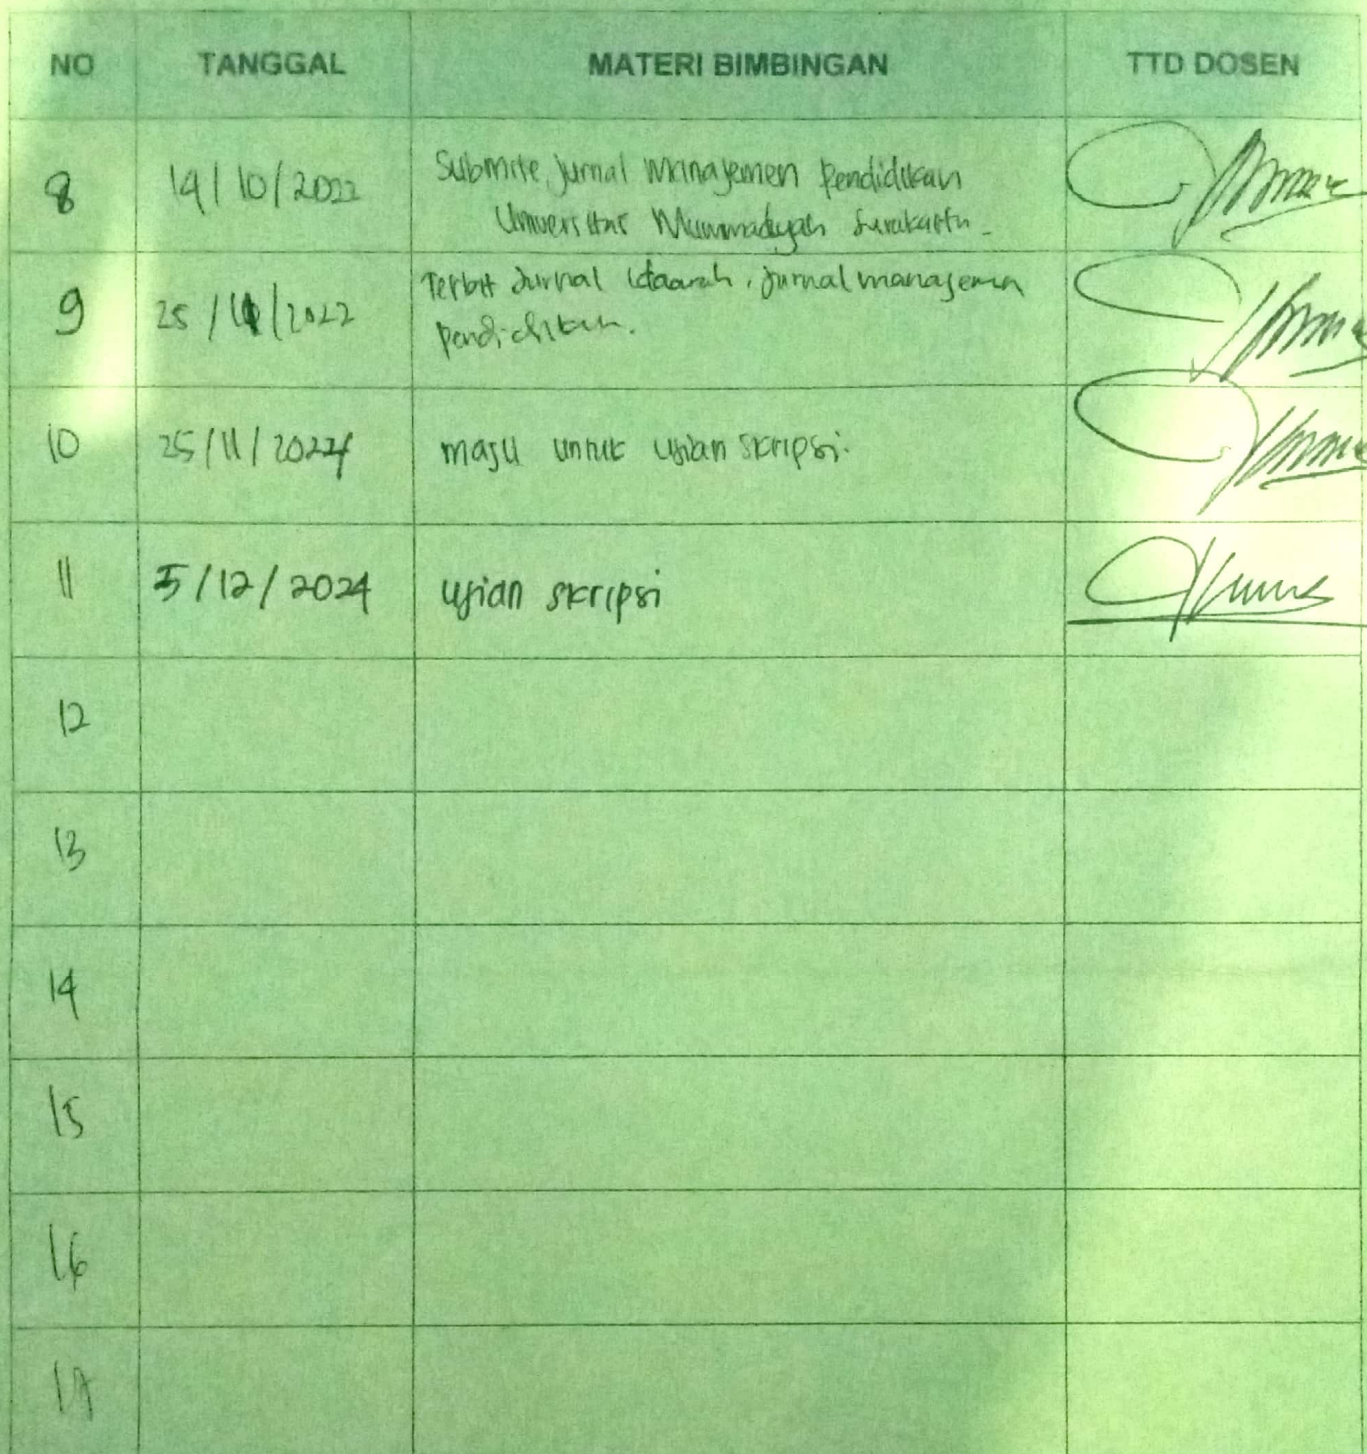 NO TANGGAL MATERI BIMBINGAN TTD DOSEN
8 14/10/2022 Submite, Jurnal Manajemen Pendidikan
Universitas Surakarta
9 25/11/2022 Terbit Jurnal Idaarah, Jurnal manajemen
Pendidikan.
10 25/11/2024 maju untuk ujian skripsi.
11 5/12/2024 ujian skripsi
12
13
14
15
16
17